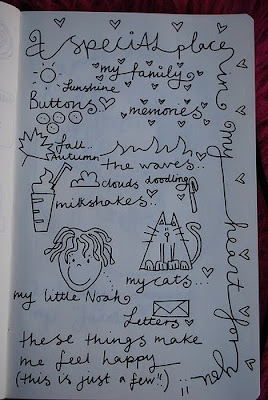 A special place in my heart for you
my family
Sunshine
Buttons
memories
fall..
Autumn
the waves..
clouds doodling
milkshakes..
my little Noah
my cats...
Letters
these things make
me feel happy
(this is just a few!!) ...